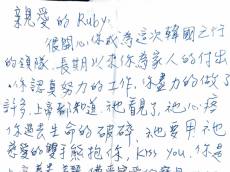 親愛的 Ruby:
很開心你成為這次韓國之行
的領隊,長期以來你為家人的付出
你認真努力的工作,你盡力的做了
許多,上帝都知道,祂看見了,祂心疼
你過去生命的破碎,祂要用祂
慈愛的雙手擁抱你,kiss you,你是